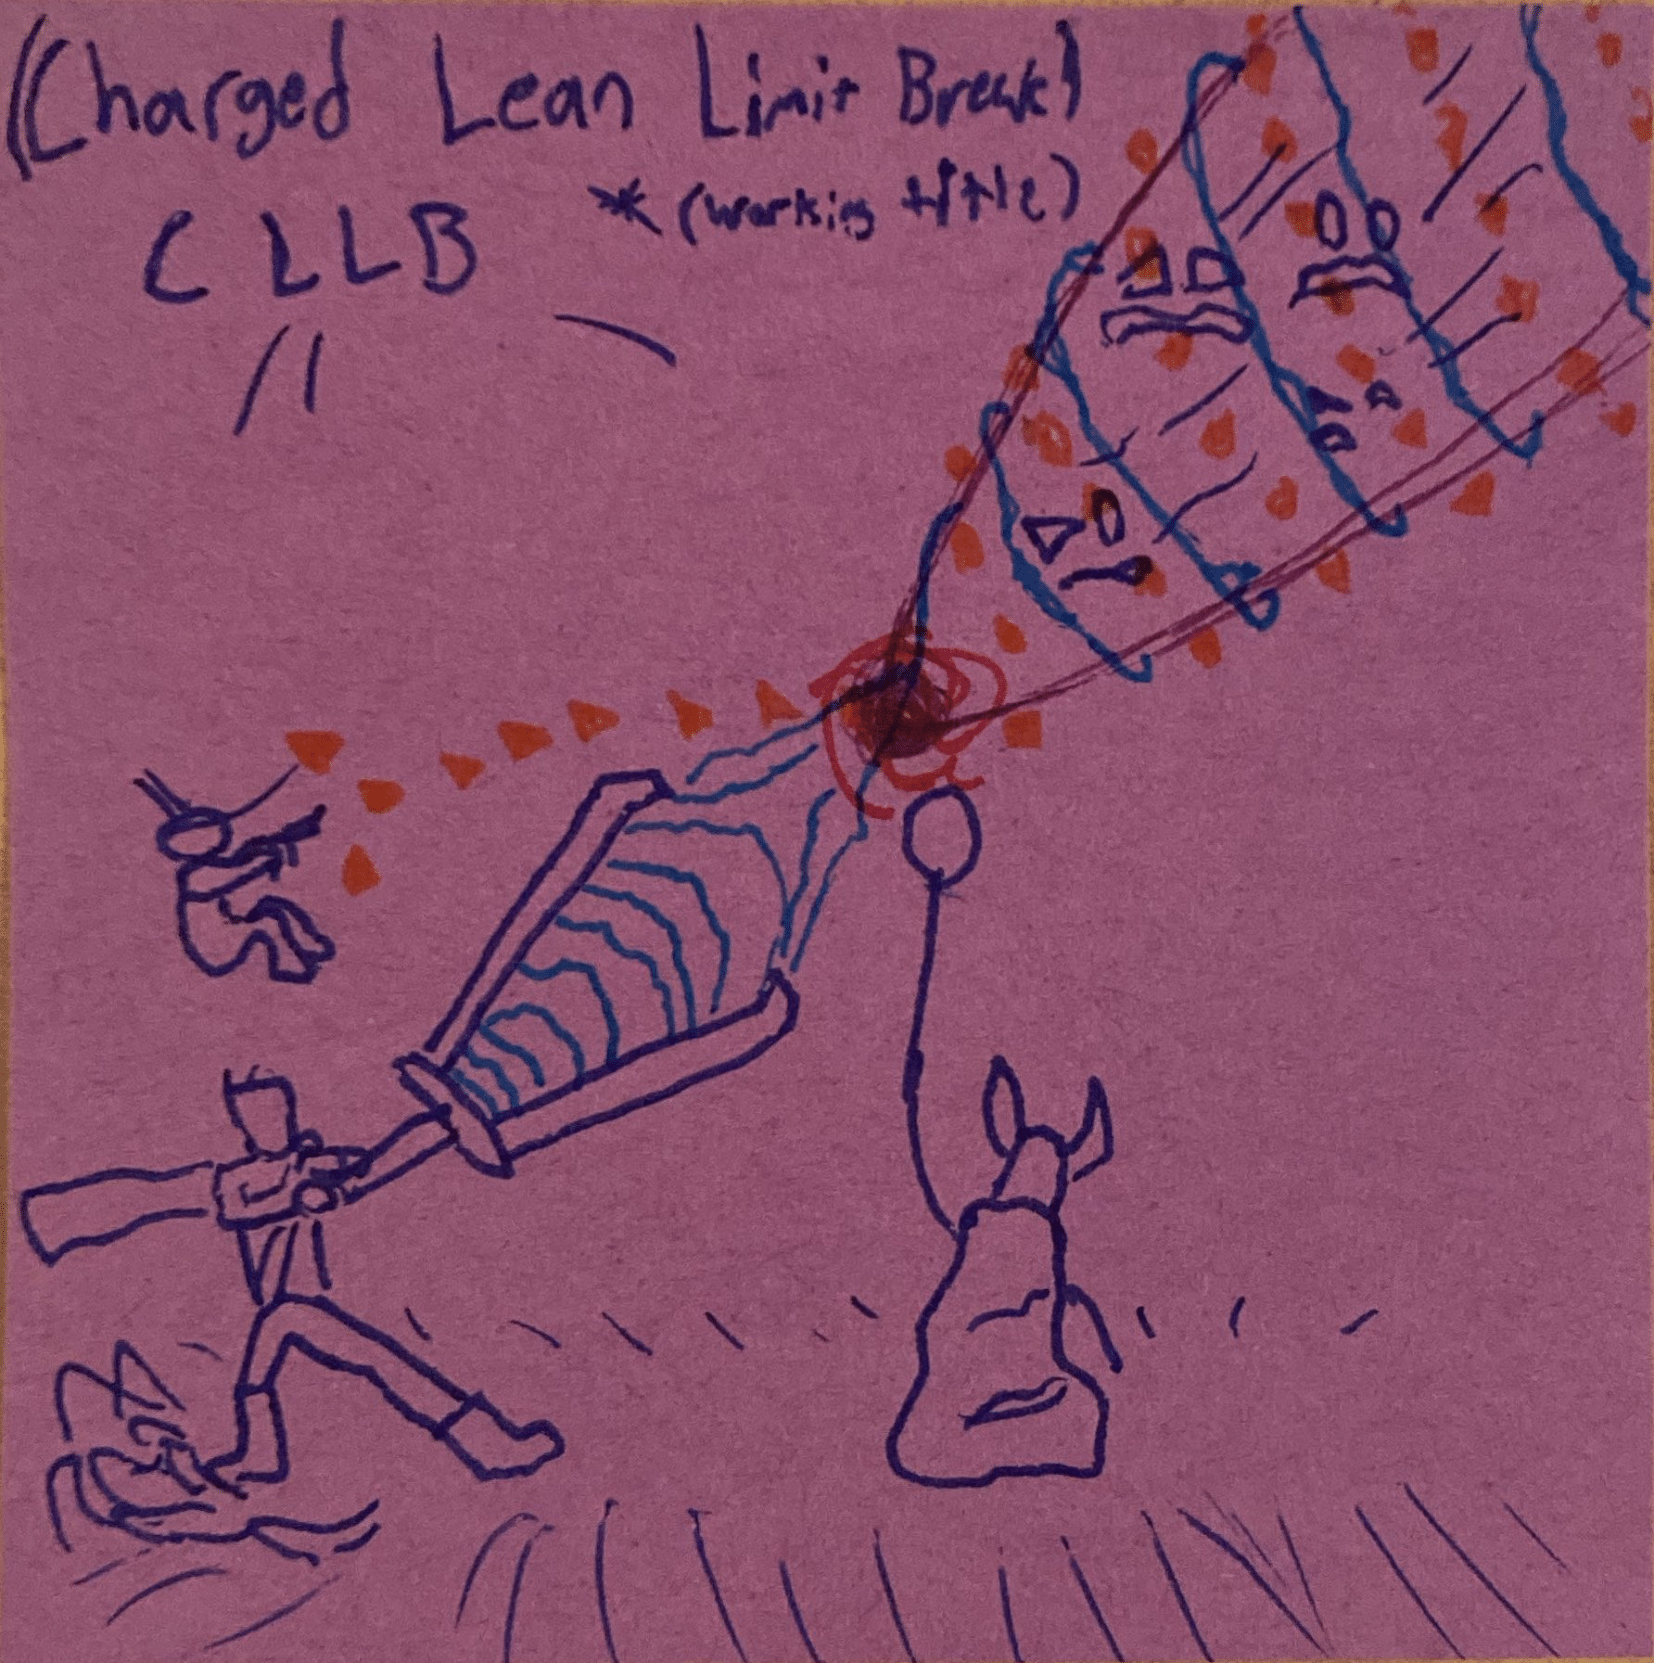 (Charged Lean Limit Break)
CLLB * (working title)